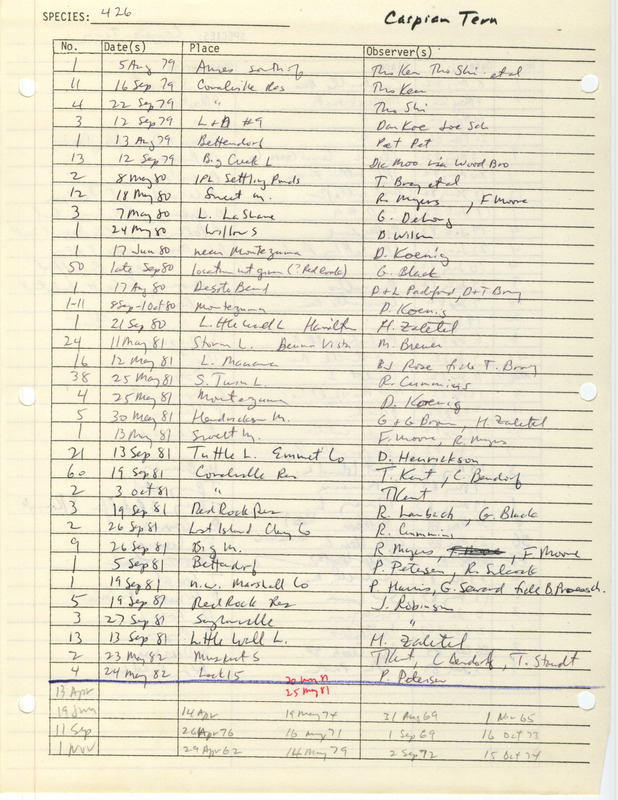 SPECIES: 426 Caspian Tern
No. Date(s) Place Observer(s)
1 5 Aug 79 Ames south of Tho Ken Tho Shi et al
11 16 Sep 79 Coralville Res Tho Ken
4 22 Sep 79 " Tho Shi
3 12 Sep 79 L+D #9 Dan Koe Joe Sch
1 13 Aug 79 Bettendorf Pet Pet
13 12 Sep 79 Big Creek L Dic Moo via Wood Bro
2 8 May 80 IPL Settling Ponds T. Bray et al
12 18 May 80 Sweet M. R. Myers, F Moore
3 7 May 80 L. LaShane G. DeLong
1 24 May 80 Willow S B. Wilson
1 17 Jun 80 near Montezuma D. Koenig
50 late Sep 80 location not given (? Red Rock) G. Black
1 17 Aug 80 Desoto Bend D+L Padford, D+T Bray
1-11 8 Sep-1 Oct 80 Montezuma D. Koenig
1 21 Sep 80 Little Wall L Hamilton H. Zaletel
24 11 May 81 Storm L. Buena Vista M. Brewer
16 12 May 81 L. Manawa BJ Rose fide T. Bray
38 25 May 81 S. Twin L. R. Cummins
4 25 May 81 Montezuma D. Koenig
5 30 May 81 Hendrickson M. G + G Brown, H. Zaletel
1 13 May 81 Sweet M. F. Moore, R. Myers
21 13 Sep 81 Tuttle L. Emmet Co D. Henrickson
60 19 Sep 81 Coralville Res T. Kent, C. Bendorf
2 3 Oct 81 " TKent
3 19 Sep 81 Red Rock Res R. Lambach, G. Black
2 26 Sep 81 Lost Island Clay Co R. Cummins
9 26 Sep 81 Big M. R. Myers, F Moore
1 5 Sep 81 Bettendorf P. Petersen, R. Silcock
1 19 Sep 81 n.w. Marshall Co P. Harris, G. Seward fide B. Proescholdt
5 19 Sep 81 Red Rock Res J. Robinson
3 27 Sep 81 Saylorville "
13 13 Sep 81 Little Wall L. H. Zaletel
2 23 May 82 Muscat S TKent, C Bendorf, T. Staudt
4 24 May 82 Lock 15 P. Petersen
13 Apr 25 May 81
19 Jun 14 Apr 19 May 74 31 Aug 69 1 Nov 65
11 Sep 26 Apr 76 16 May 71 1 Sep 69 16 Oct 73
1 Nov 29 Apr 62 14 May 79 2 Sep 72 15 Oct 74